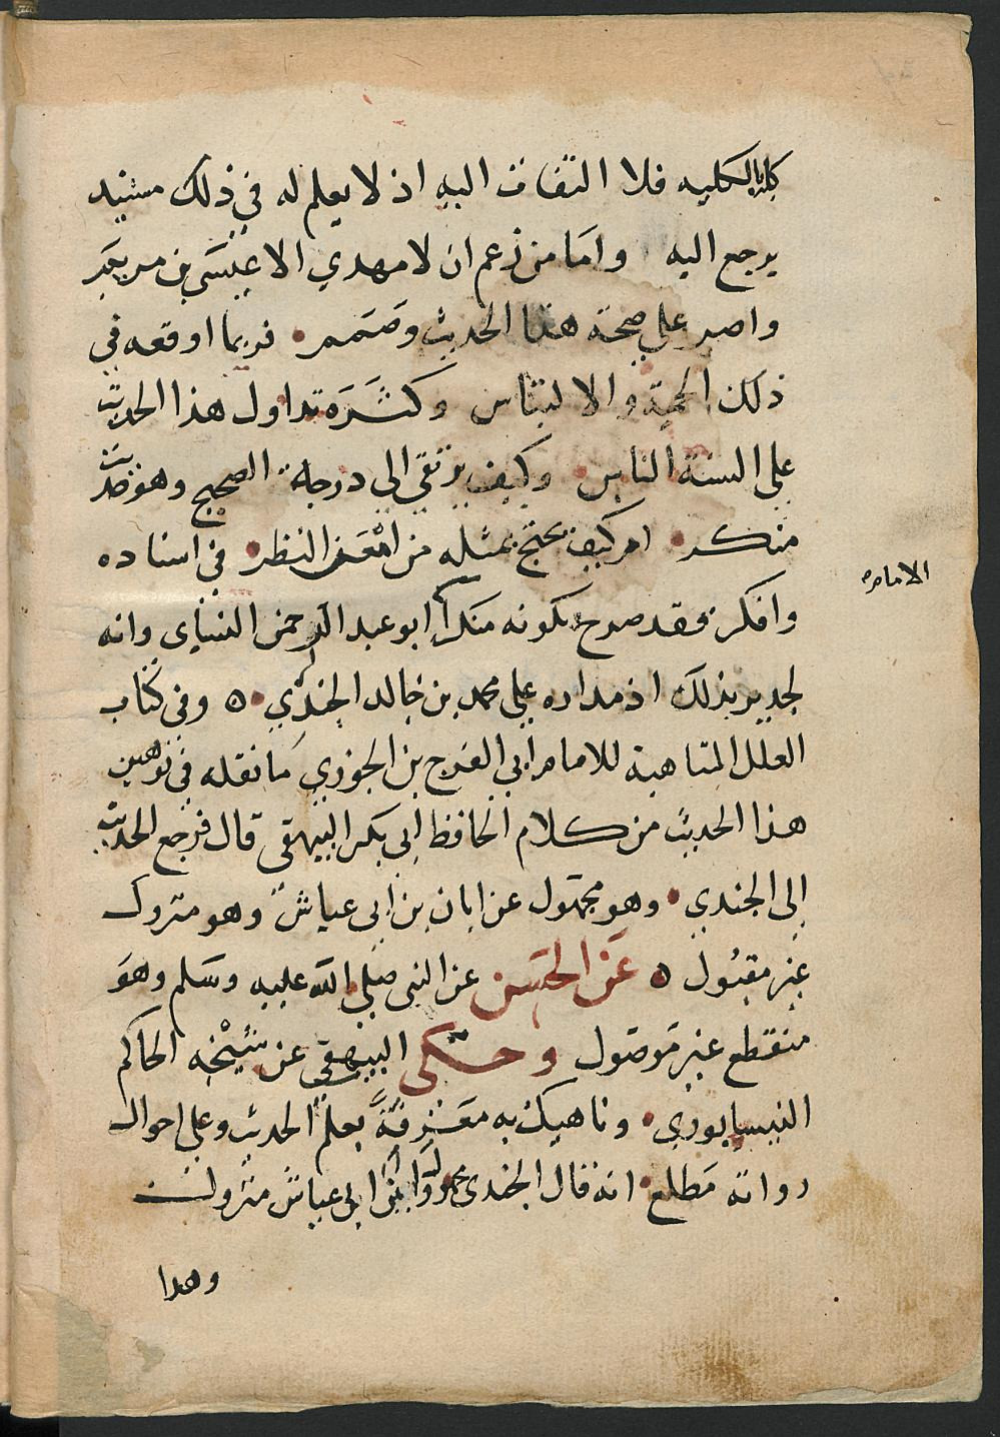 كله بالكليه فلا التفات اليه اذ لا يعلم له في ذلك مستند
يرجع اليه واما من زعم ان لا مهدي الا عيسى بن مريم
واصر على صحة هذا الحديث وصمم فربما اوقعه في
ذلك الحمية والالتباس وكثرة تداول هذا الحديث
على السنة الناس وكيف يرتقي الى درجة الصحيح وهو حديث
منكر ام كيف يحتج بمثله من امعن النظر في اسناده
الامام
وافكر فقد صرح بكونه منكرا ابو عبد الرحمن النسايى وانه
لجدير بذلك اذ مداره على محمد بن خالد الجندي ه وفي كتاب
العلل المتناهية للامام ابي الفرج بن الجوزي ما نقله في توهين
هذا الحديث من كلام الحافظ ابي بكر البيهقى قال فرجع الحديث
الى الجندي وهو مجهول عن ابان بن ابى عياش وهو متروك
غير مقبول ه عن الحسن عن النبى صلى الله عليه وسلم وهو
منقطع غير موصول وحكى البيهقى عن شيخه الحاكم
النيسابوري وناهيك به معرفة بعلم الحديث وعلى احوال
رواته مطلع انه قال الجندى مجهول وابن ابى عياش متروك
وهدا